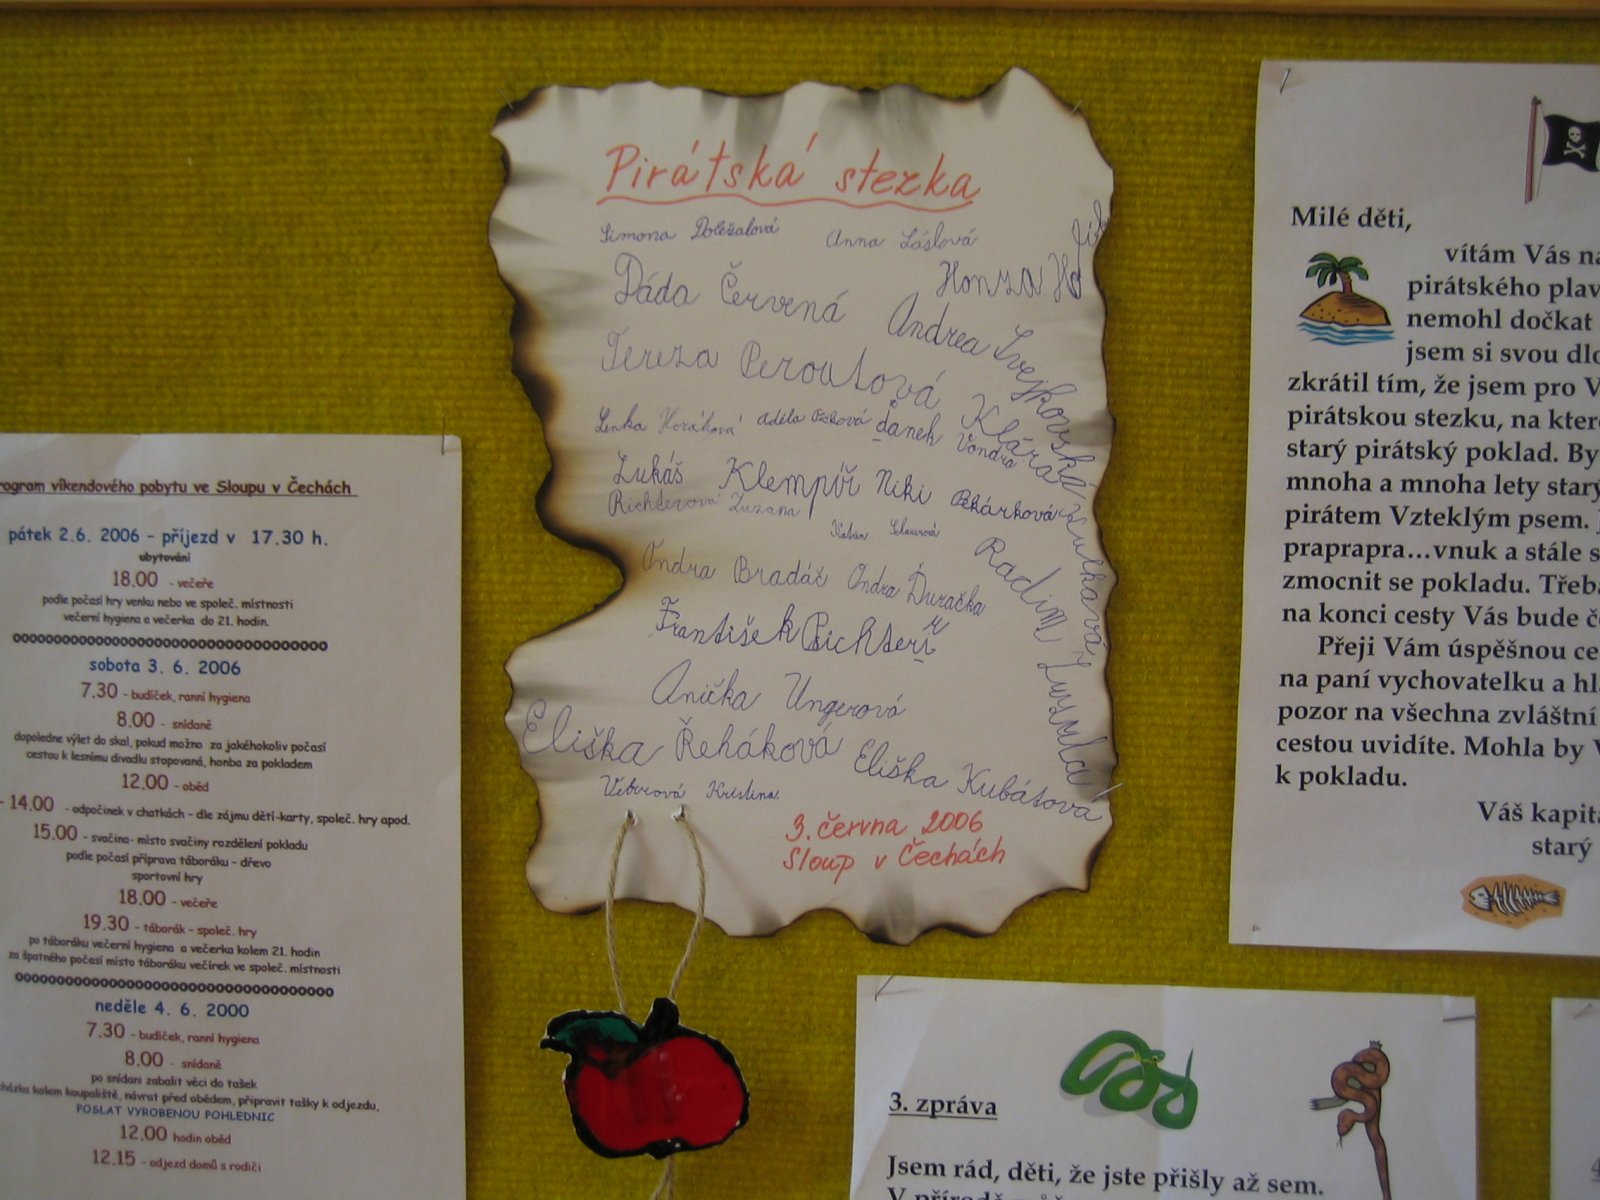 rogram víkendového pobytu ve Sloupu v Čechách
pátek 2.6. 2006 - příjezd v 17.30 h.
ubytování
18.00 - večeře
podle počasí hry venku nebo ve společ. místnosti
večerní hygiena a večerka do 21. hodin.
sobota 3. 6. 2006
7.30 - budíček, ranní hygiena
8.00 - snídaně
dopoledne výlet do skal, pokud možno za jakéhokoliv počasí
cestou k lesnímu divadlu stopovaná, honba za pokladem
12.00 - oběd
- 14.00 - odpočinek v chatkách - dle zájmu dětí-karty, společ. hry apod.
15.00 - svačina- místo svačiny rozdělení pokladu
podle počasí příprava táboráku - dřevo
sportovní hry
18.00 - večeře
19.30 - táborák - společ. hry
po táboráku večerní hygiena a večerka kolem 21. hodin
za špatného počasí místo táboráku večírek ve společ. místnosti
neděle 4. 6. 2000
7.30 - budíček, ranní hygiena
8.00 - snídaně
po snídani zabalit věci do tašek
cházka kolem koupaliště, návrat před obědem, připravit tašky k odjezdu,
POSLAT VYROBENOU POHLEDNIC
12.00 hodin oběd
12.15 - odjezd domů s rodiči
Pirátská stezka
Simona Doležalová Anna Láslová
Honza
Dáda Červená Andrea Švejkovská
Tereza Peroutová
Klára Kulkavá
Lenka Horáková Adéla danek Vondra
Lukáš Klempíř Niki Pekárková
Richterová Zuzana
Ondra Bradáč Ondra Ďuračka
Radim
František Richter
Anička Ungerová
Eliška Řeháková Eliška Kubátová
Veberová Kristina
3. června 2006
Sloup v Čechách
Milé děti,
vítám Vás na
pirátského plav
nemohl dočkat
jsem si svou dlo
zkrátil tím, že jsem pro V
pirátskou stezku, na kter
starý pirátský poklad. By
mnoha a mnoha lety starý
pirátem Vzteklým psem. J
praprapra...vnuk a stále s
zmocnit se pokladu. Třeba
na konci cesty Vás bude č
Přeji Vám úspěšnou ce
na paní vychovatelku a hl
pozor na všechna zvláštní
cestou uvidíte. Mohla by V
k pokladu.
Váš kapit
starý
3. zpráva
Jsem rád, děti, že jste přišly až sem.